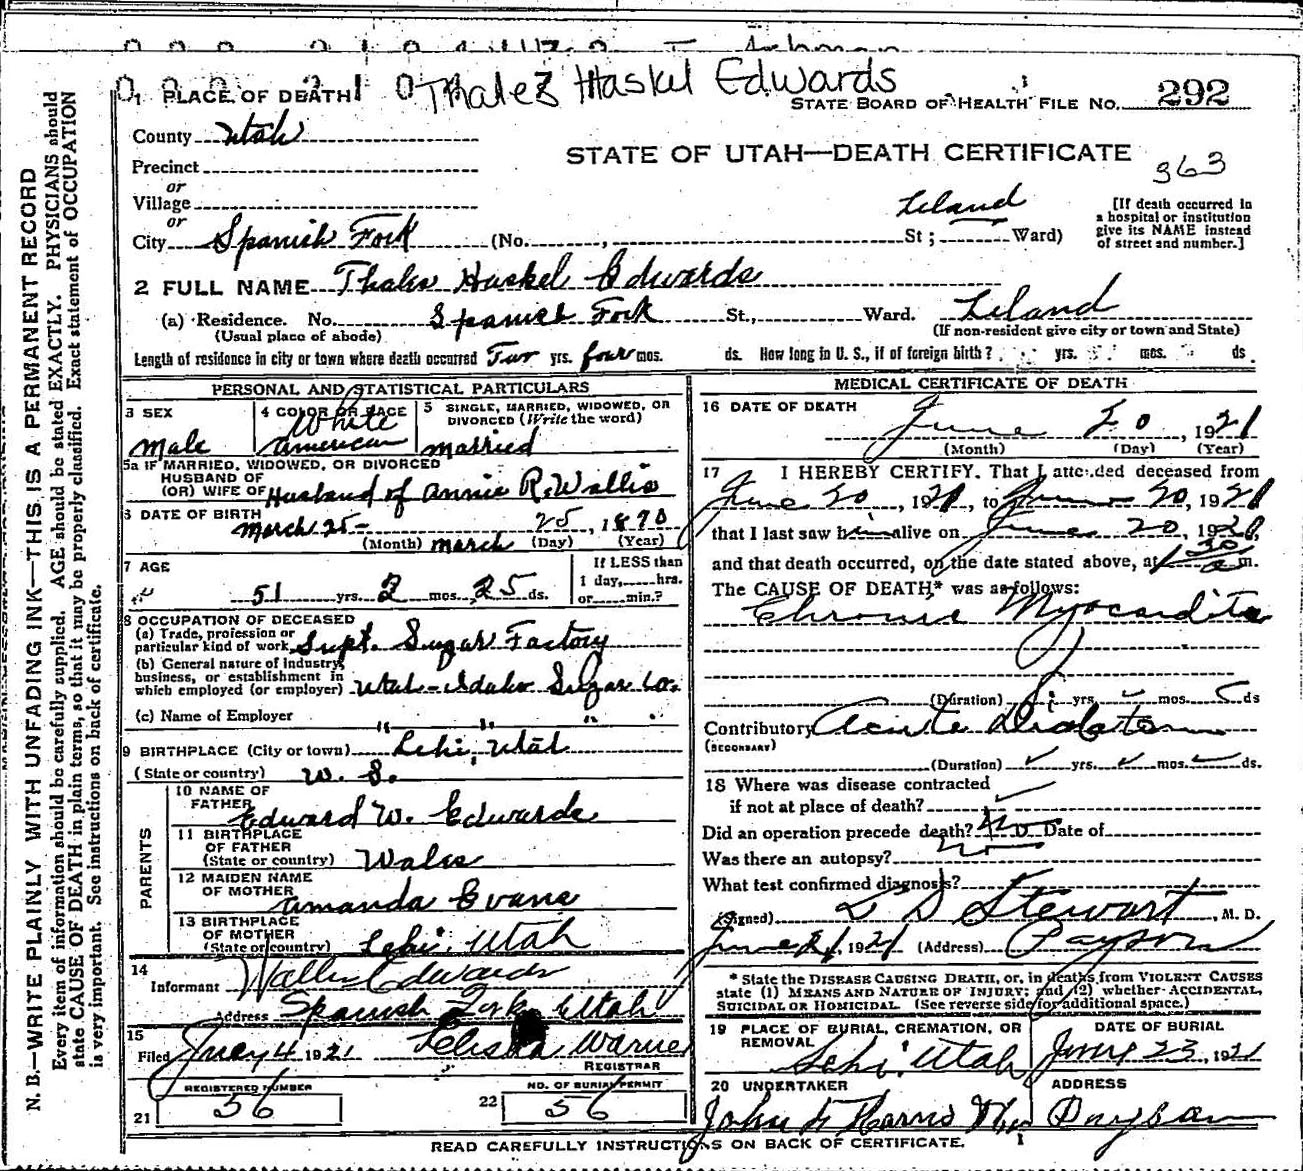 Thalez Haskel Edwards
1 PLACE OF DEATH
STATE BOARD OF HEALTH FILE NO. 292
County Utah
STATE OF UTAH—DEATH CERTIFICATE
363
Precinct
or
Village
or
City Spanish Fork (No. , Leland St ; Ward)
[If death occurred in a hospital or institution give its NAME instead of street and number.]
2 FULL NAME Thales Haskel Edwards
(a) Residence. No. Spanish Fork St., Ward. Leland
(Usual place of abode) (If non-resident give city or town and State)
Length of residence in city or town where death occurred yrs. four mos. ds. How long in U. S., if of foreign birth? yrs. mos. ds.
PERSONAL AND STATISTICAL PARTICULARS
3 SEX
male
4 COLOR OR RACE
White
American
5 SINGLE, MARRIED, WIDOWED, OR DIVORCED (Write the word)
married
5a IF MARRIED, WIDOWED, OR DIVORCED
HUSBAND OF
(OR) WIFE OF Husband of Annie R. Wallis
6 DATE OF BIRTH
March 25- 25, 1870
(Month) March (Day) (Year)
7 AGE
51 yrs. 2 mos. 25 ds.
If LESS than
1 day, hrs.
or min.?
8 OCCUPATION OF DECEASED
(a) Trade, profession or
particular kind of work Supt. Sugar Factory
(b) General nature of Industry,
business, or establishment in
which employed (or employer) Utah-Idaho Sugar Co.
(c) Name of Employer " " "
9 BIRTHPLACE (City or town) Lehi, Utah
(State or country) U. S.
PARENTS
10 NAME OF
FATHER Edward W. Edwards
11 BIRTHPLACE
OF FATHER
(State or country) Wales
12 MAIDEN NAME
OF MOTHER Amanda Evans
13 BIRTHPLACE
OF MOTHER
(State or country) Lehi, Utah
14
Informant Wallis Edwards
Address Spanish Fork Utah
15
Filed July 4 1921 Warner
REGISTRAR
REGISTERED NUMBER
21 56
NO. OF BURIAL PERMIT
22 56
MEDICAL CERTIFICATE OF DEATH
16 DATE OF DEATH
June 20, 1921
(Month) (Day) (Year)
17 I HEREBY CERTIFY, That I attended deceased from
June 20, 1921, to June 20, 1921
that I last saw him alive on June 20, 1921,
and that death occurred, on the date stated above, at 1 30 a m.
The CAUSE OF DEATH* was as follows:
Chronic Myocarditis
(Duration) yrs. mos. ds
Contributory Acute
(SECONDARY)
(Duration) yrs. mos. ds.
18 Where was disease contracted
if not at place of death?
Did an operation precede death? No Date of
Was there an autopsy? No
What test confirmed diagnosis?
(Signed) L D Stewart, M. D.
June 21, 1921 (Address) Payson
* State the DISEASE CAUSING DEATH, or, in deaths from VIOLENT CAUSES
state (1) MEANS AND NATURE OF INJURY; and (2) whether ACCIDENTAL,
SUICIDAL OR HOMICIDAL. (See reverse side for additional space.)
19 PLACE OF BURIAL, CREMATION, OR
REMOVAL
Lehi, Utah
DATE OF BURIAL
June 23, 1921
20 UNDERTAKER
John
ADDRESS
Payson
READ CAREFULLY INSTRUCTIONS ON BACK OF CERTIFICATE.
N. B.—WRITE PLAINLY WITH UNFADING INK—THIS IS A PERMANENT RECORD
Every item of information should be carefully supplied. AGE should be stated EXACTLY. PHYSICIANS should
state CAUSE OF DEATH in plain terms, so that it may be properly classified. Exact statement of OCCUPATION
is very important. See instructions on back of certificate.